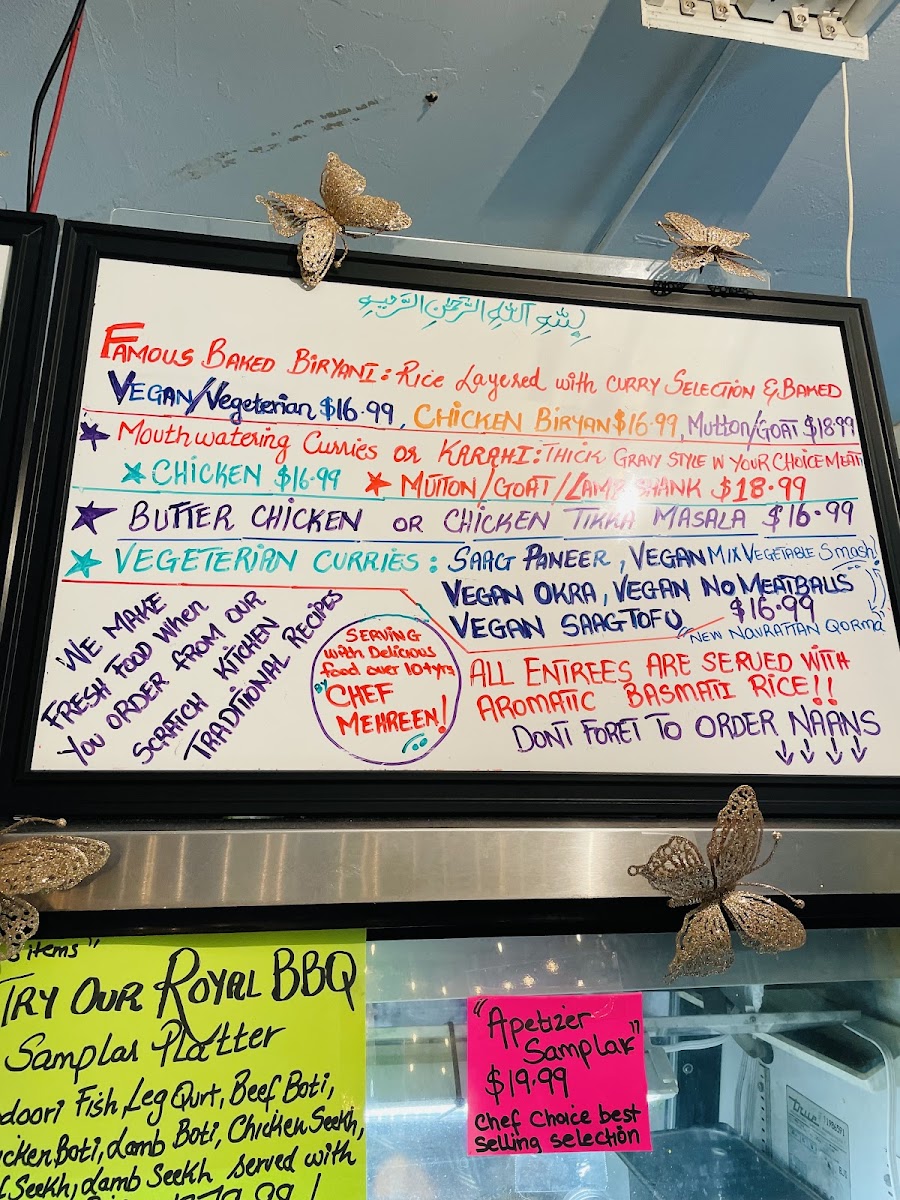 بِسْمِ اللهِ الرَّحْمٰنِ الرَّحِيمِ
FAMOUS BAKED BIRYANI: Rice Layered with CURRY SELECTION & BAKED
VEGAN/Vegeterian $16.99, CHICKEN BIRYAN $16.99, Mutton/GOAT $18.99
★ Mouthwatering Curries or KARAHI: THICK GRAVY STYLE W YOUR CHOICE MEAT
★ CHICKEN $16.99 ★ MUTTON/GOAT/LAMB SHANK $18.99
★ BUTTER CHICKEN OR CHICKEN TIKKA MASALA $16.99
★ VEGETERIAN CURRIES: SAAG PANEER, VEGAN MIX VEGETABLE Smash!
VEGAN OKRA, VEGAN NO MEATBALLS
VEGAN SAAG TOFU $16.99
NEW NAVRATTAN QORMA
WE MAKE
FRESH FOOD WHEN
YOU ORDER FROM OUR
SCRATCH KITCHEN
TRADITIONAL RECIPES
SERVING
with Delicious
food over 10+yrs
BY CHEF
MEHREEN!
ALL ENTREES ARE SERVED WITH
AROMATIC BASMATI RICE!!
DONT FORET TO ORDER NAANS
↓ ↓ ↓ ↓
items"
TRY OUR ROYAL BBQ
Samplar Platter
doori Fish, Leg Qurt, Beef Boti,
cken Boti, Lamb Boti, Chicken Seekh,
f Seekh, Lamb Seekh served with
"Apetizer
Samplar"
$19.99
Chef Choice best
selling selection
True